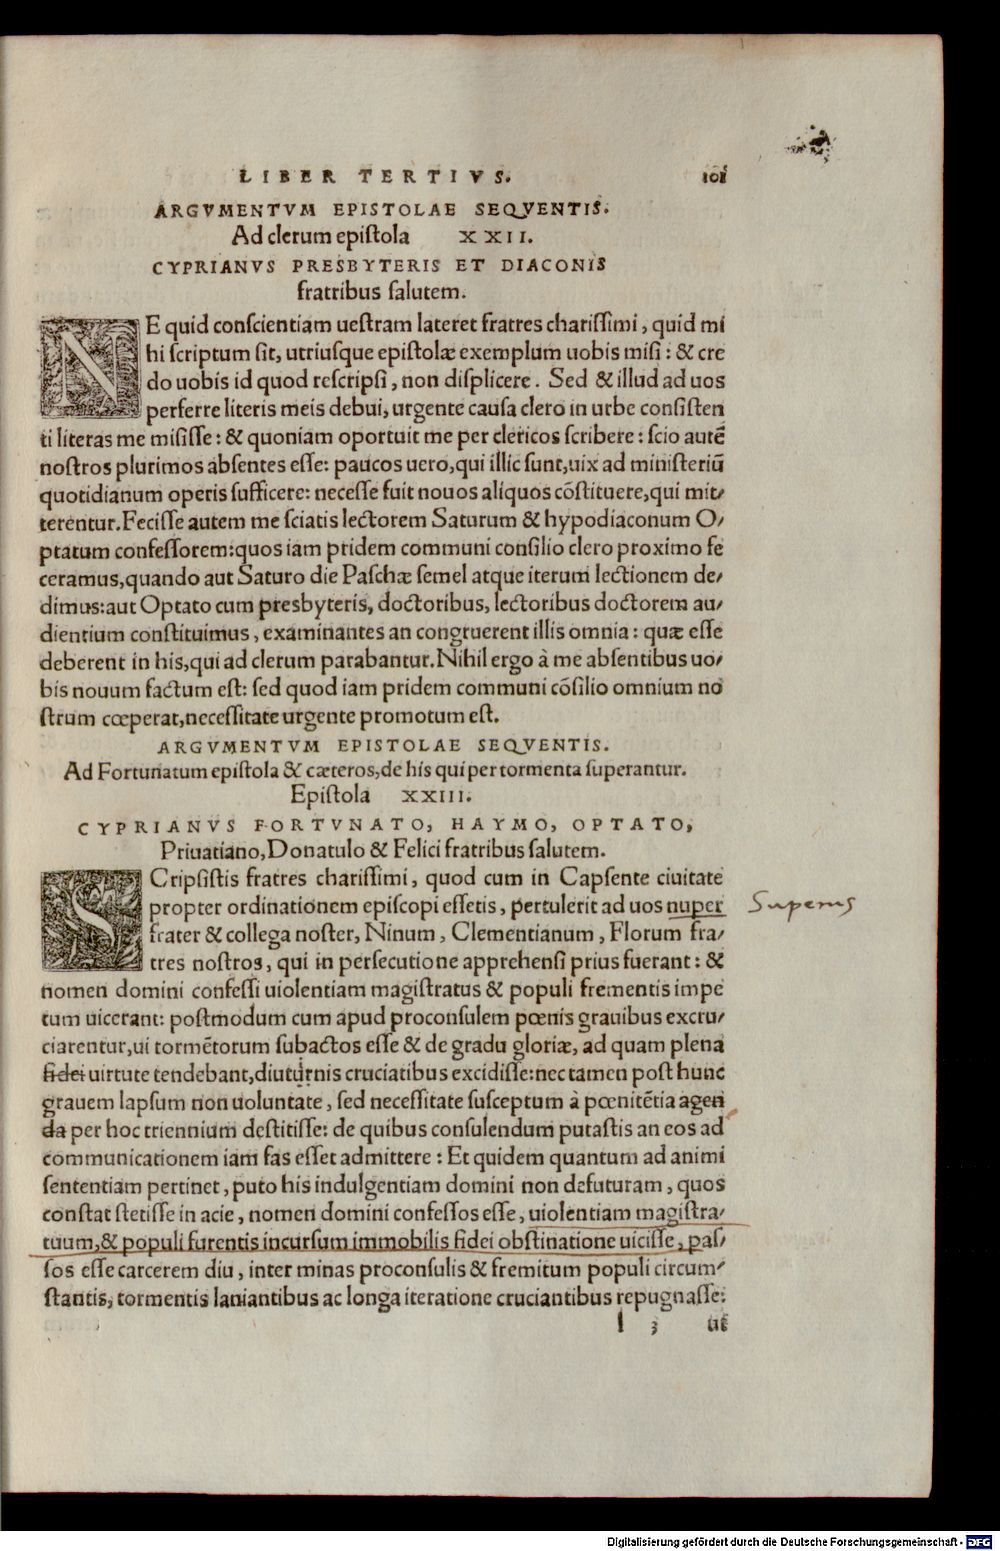 LIBER TERTIVS. 101
ARGVMENTVM EPISTOLAE SEQVENTIS.
Ad clerum epistola XXII.
CYPRIANVS PRESBYTERIS ET DIACONIS
fratribus salutem.
NE quid conscientiam uestram lateret fratres charissimi, quid mi
hi scriptum sit, utriusque epistolæ exemplum uobis misi: & cre
do uobis id quod rescripsi, non displicere. Sed & illud ad uos
perferre literis meis debui, urgente causa clero in urbe consisten
ti literas me misisse: & quoniam oportuit me per clericos scribere: scio autē
nostros plurimos absentes esse: paucos uero, qui illic sunt, uix ad ministeriū
quotidianum operis sufficere: necesse fuit nouos aliquos cōstituere, qui mit⸗
terentur. Fecisse autem me sciatis lectorem Saturum & hypodiaconum O⸗
ptatum confessorem: quos iam pridem communi consilio clero proximo fe
ceramus, quando aut Saturo die Paschæ semel atque iterum lectionem de⸗
dimus: aut Optato cum presbyteris, doctoribus, lectoribus doctorem au⸗
dientium constituimus, examinantes an congruerent illis omnia: quæ esse
deberent in his, qui ad clerum parabantur. Nihil ergo à me absentibus uo⸗
bis nouum factum est: sed quod iam pridem communi cōsilio omnium no
strum cœperat, necessitate urgente promotum est.
ARGVMENTVM EPISTOLAE SEQVENTIS.
Ad Fortunatum epistola & cæteros, de his qui per tormenta superantur.
Epistola XXIII.
CYPRIANVS FORTVNATO, HAYMO, OPTATO,
Priuatiano, Donatulo & Felici fratribus salutem.
SCripsistis fratres charissimi, quod cum in Capsente ciuitate
propter ordinationem episcopi essetis, pertulerit ad uos nuper Superius
frater & collega noster, Ninum, Clementianum, Florum fra⸗
tres nostros, qui in persecutione apprehensi prius fuerant: &
nomen domini confessi uiolentiam magistratus & populi frementis impe
tum uicerant: postmodum cum apud proconsulem pœnis grauibus excru⸗
ciarentur, ui tormētorum subactos esse & de gradu gloriæ, ad quam plena
fidei uirtute tendebant, diuturnis cruciatibus excidisse: nec tamen post hunc
grauem lapsum non uoluntate, sed necessitate susceptum à pœnitētia agen
da per hoc triennium destitisse: de quibus consulendum putastis an eos ad
communicationem iam fas esset admittere: Et quidem quantum ad animi
sententiam pertinet, puto his indulgentiam domini non defuturam, quos
constat stetisse in acie, nomen domini confessos esse, uiolentiam magistra⸗
tuum, & populi furentis incursum immobilis fidei obstinatione uicisse, pas⸗
sos esse carcerem diu, inter minas proconsulis & fremitum populi circum⸗
stantis, tormentis laniantibus ac longa iteratione cruciantibus repugnasse:
l 3 ut
Digitalisierung gefördert durch die Deutsche Forschungsgemeinschaft - DFG